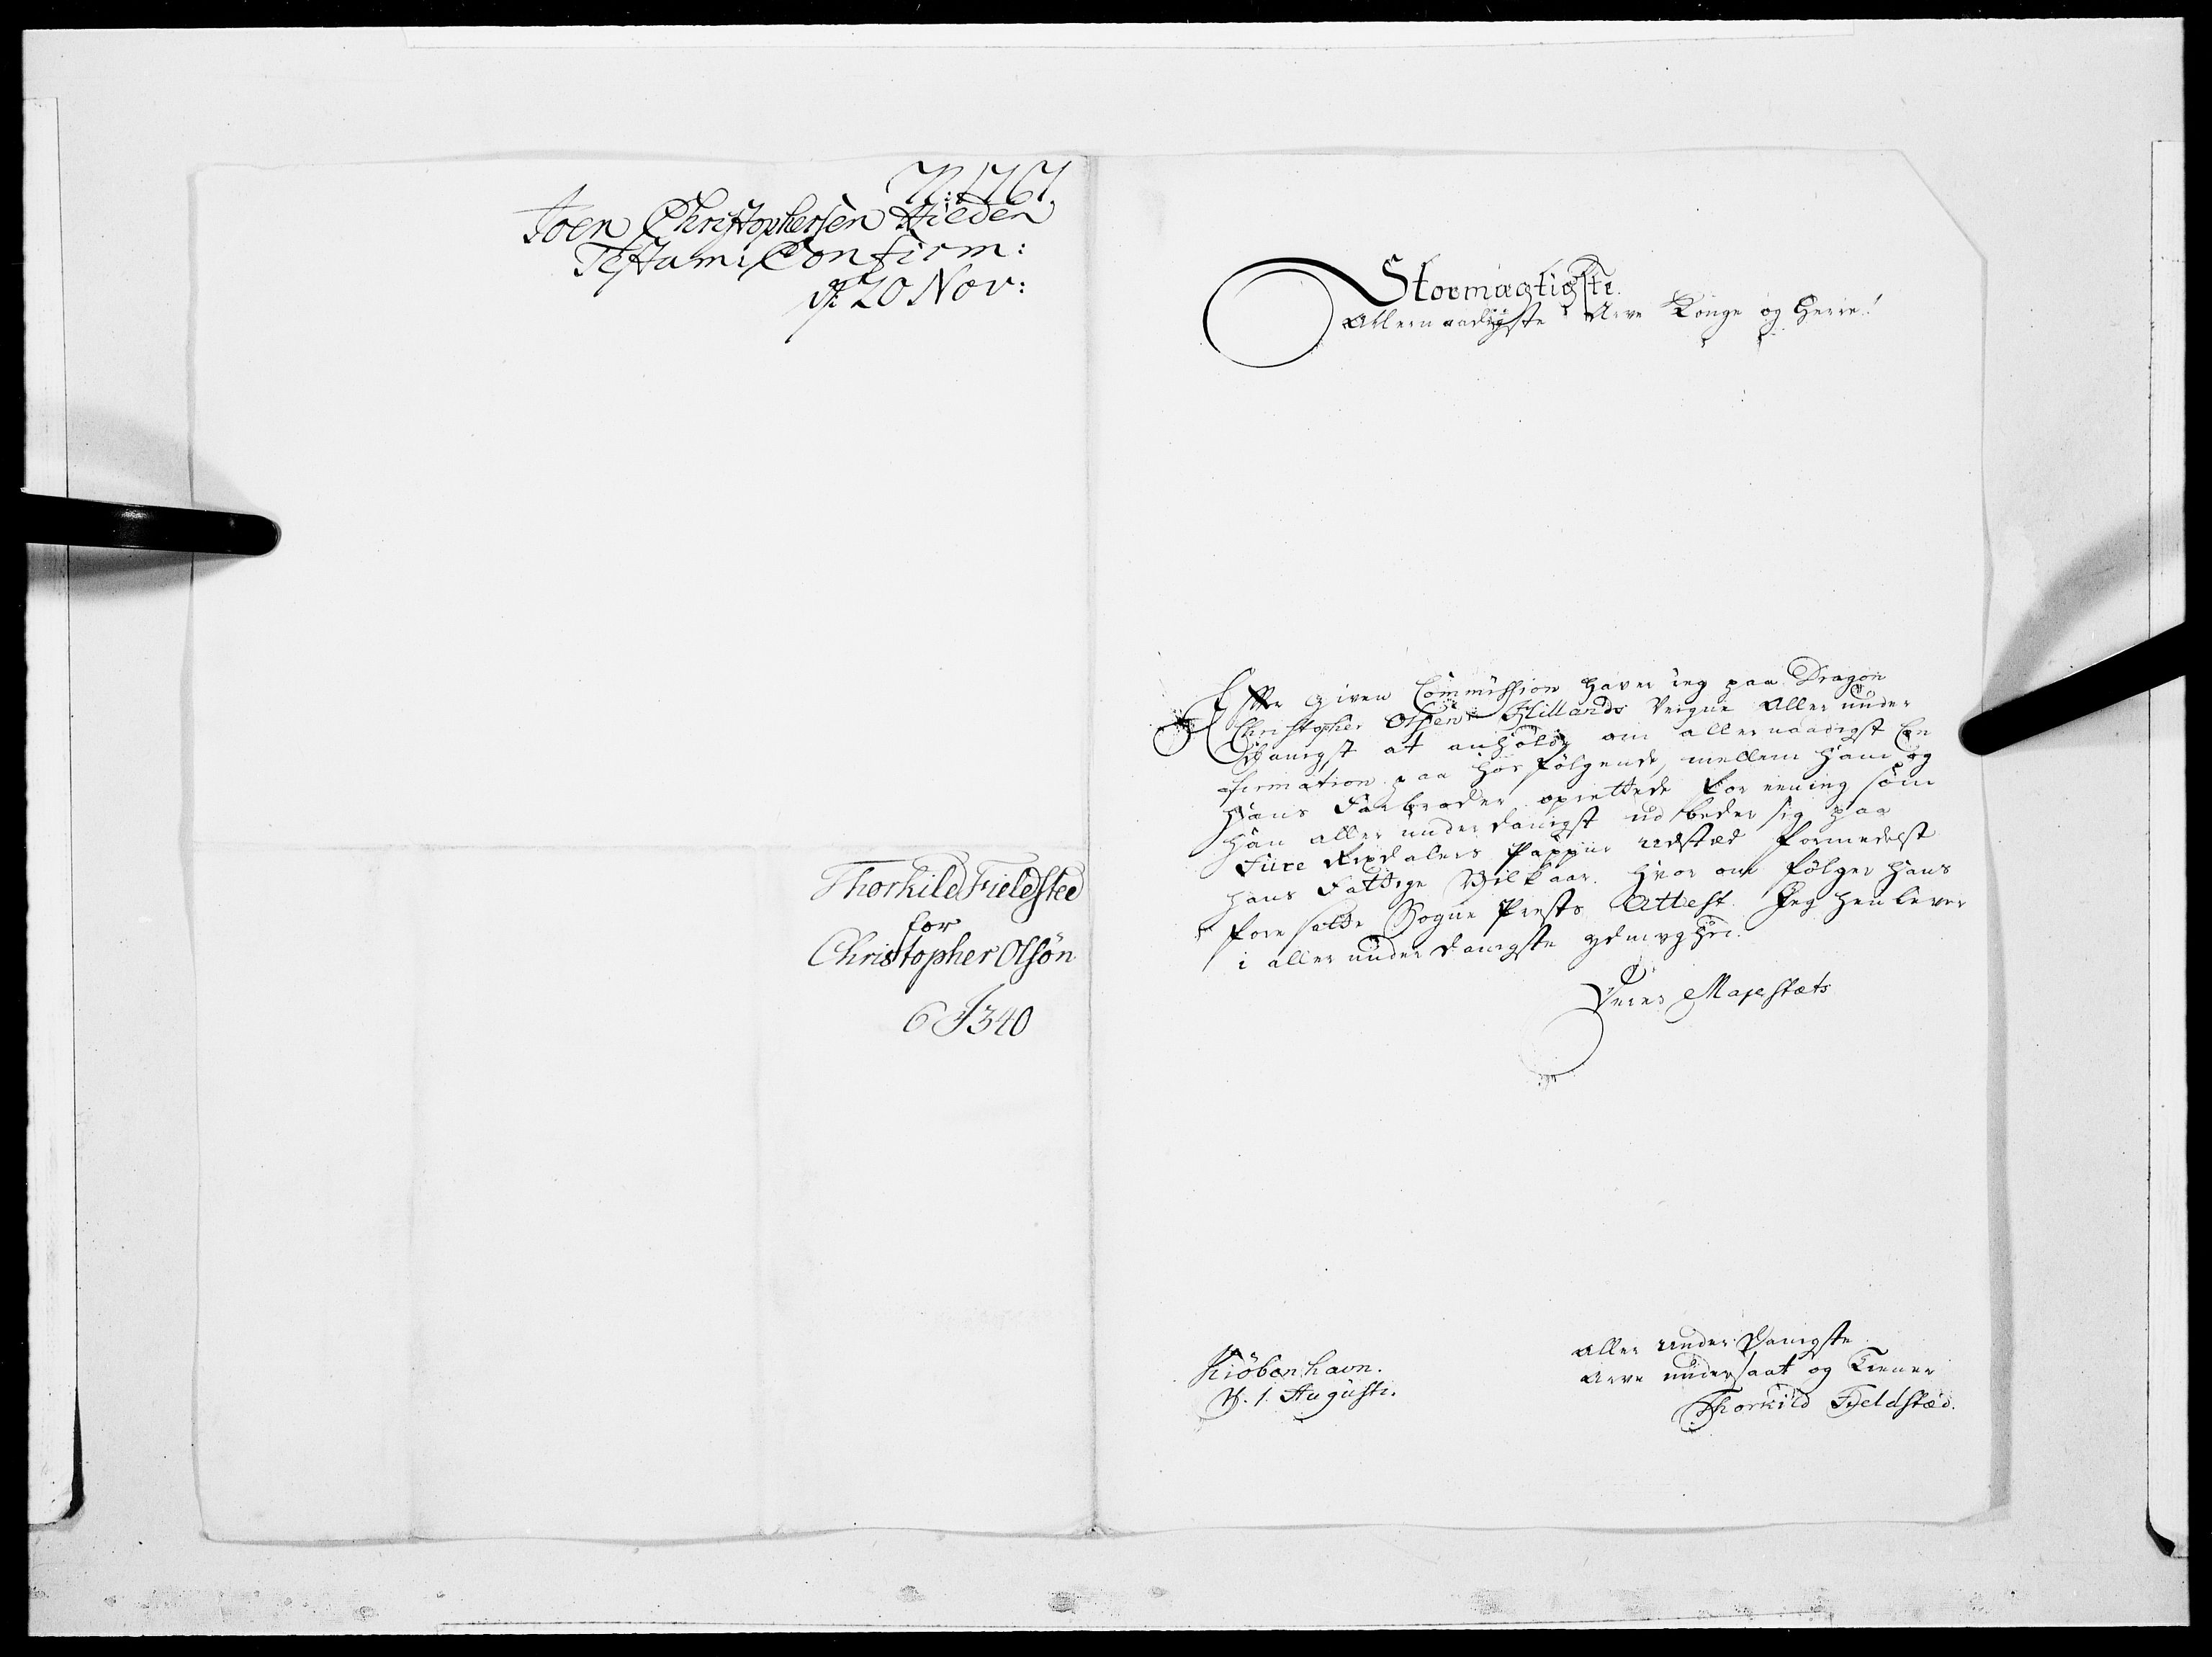 N: 1767.
Joen Christophersen Hielden
Testam: Confirm:
d: 20 Nov:
Thorkild Fieldsted
for
Christopher Olsön
6 J 340
Stormægtigste
Allernaadigste Arve Konge og Herre!
Efter given Commission haver ieg paa Dragon
Christopher Olsen Hillands Veigne Aller under
Danigst at anholde om allernaadigst Con
firmation paa hosfølgende, mellem ham og
hans Farbroder oprettede Foreening som
han aller underdanigst udbeder sig paa
Fiire Rixdalers Pappiir udstæd formedelst
hans Fattige Vilkaar. hvor om følger hans
foresatte Sogne Prests Attest. Jeg henlever
i aller underdanigste ydmyghed.
Deres Majestæts
Kiöbenhavn.
d. 1. Augusti.
Aller under Danigste
Arve undersaat og Tiener
Thorkild Fjeldstæd.